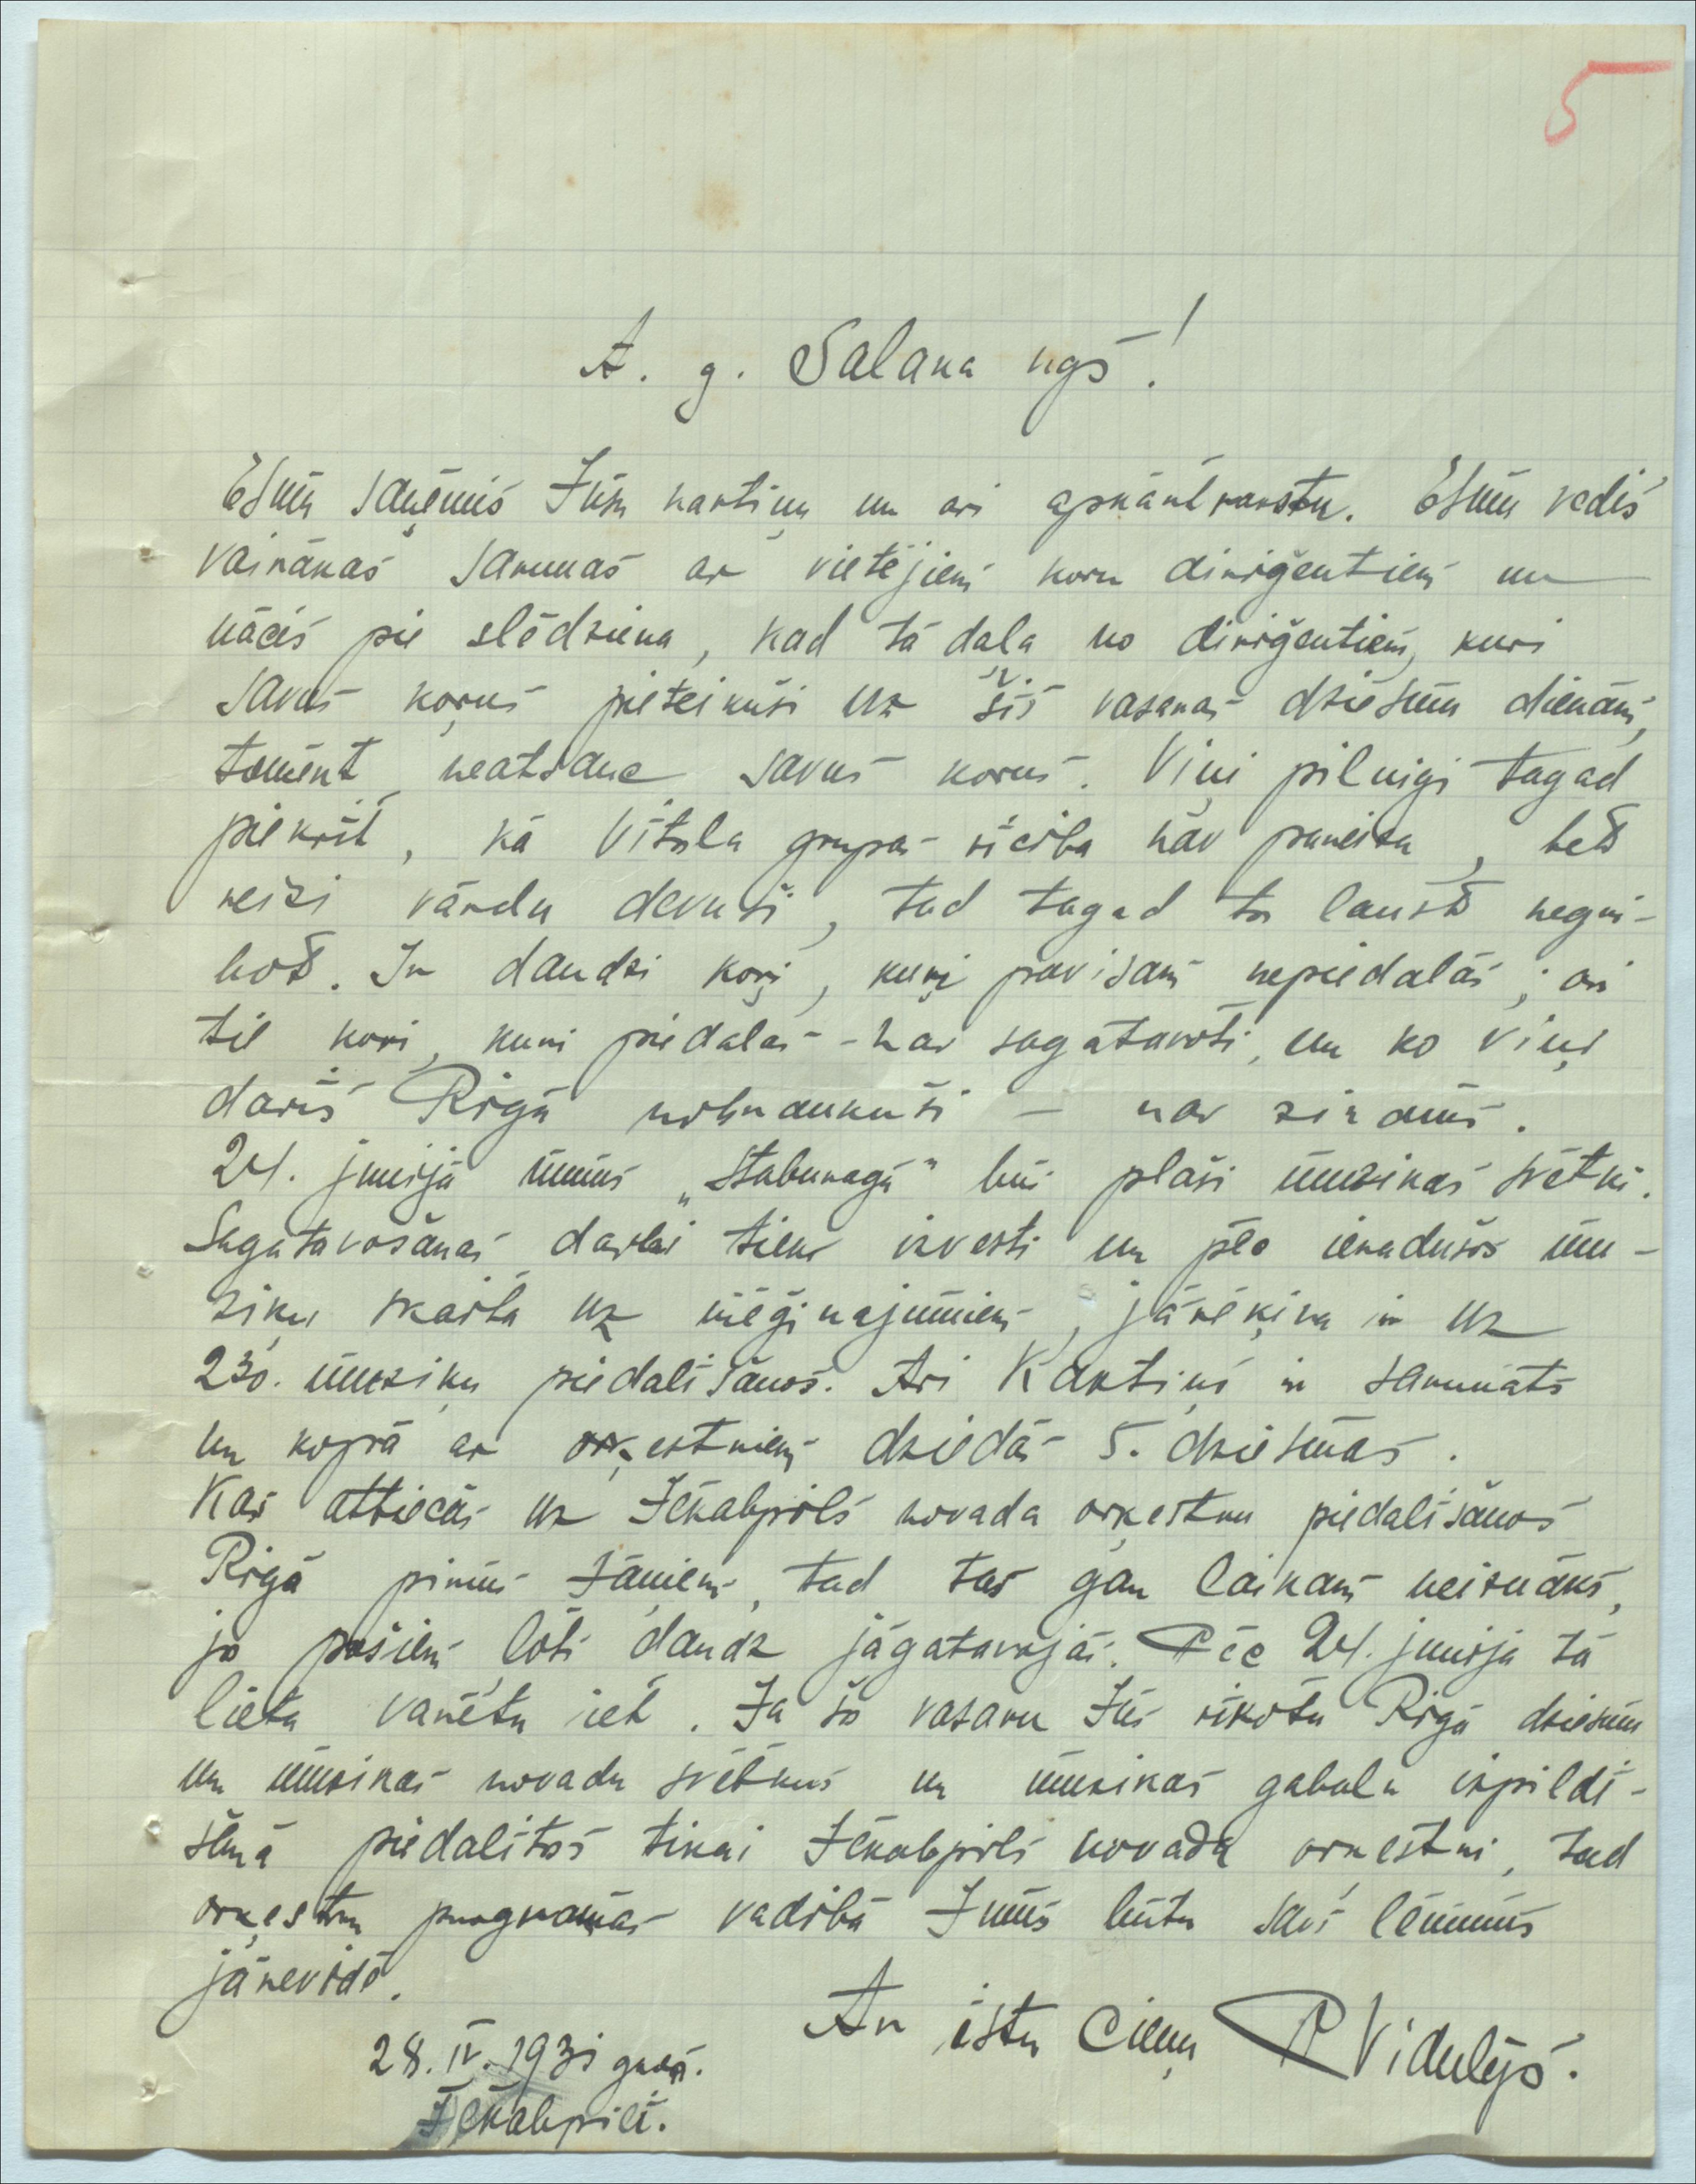 5
A. g. Salaka kgs!
Esmu saņēmis Jūsu kartiņu un ari apkārtrakstu. Esmu vedis
vairākas sarunas ar vietējiem koru diriģentiem un
nācis pie slēdziena, kad tā daļa no diriģentiem, kuri
savus koŗus pieteikuši uz šīs vasaras dziesmu dienām,
tomēr neatsauc savus korus. Viņi pilnigi tagad
piekrīt, kā Vītola grupas rīcība nav pareiza, bet
reizi vārdu devuši, tad tagad to lauzt negri-
bot. Ir daudzi koŗi, kuŗi pavisam nepiedalās; ari
tie kori, kuri piedalas - nav sagatavoti, un ko viņi
darīs Rīgā nobraukuši - nav zināms.
24. junijā mums „Staburagā" būs plaši mūzikas svētki.
Sagatavošanas darbi tiek izvesti un pēc ieradušos mu-
ziķu skaita uz mēģinajumiem, jārēķina ir uz
230. muziķu piedalīšanos. Ari Kaktiņš ir sarunāts
un kopā ar orķestriem dziedās 5. dziesmas.
Kas attiecas uz Jēkabpils novada orķestru piedalīšanos
Rīgā pirms Jāņiem, tad tas gan laikam neiznāks,
jo pašiem ļoti daudz jāgatavojās. Pēc 24. junija tā
lieta varētu iet. Ja šo vasaru Jūs rīkotu Rīgā dziesmu
un mūzikas novadu svētkus un muzikas gabalu izpildī-
šanā piedalītos tikai Jēkabpils novada orķestri, tad
orķestru programas vadībā Jums būtu savs lēmums
jānovēdē.
Ar īstu cieņu P Vidulejs.
28. IV. 1931 gadā.
Jēkabpilī.